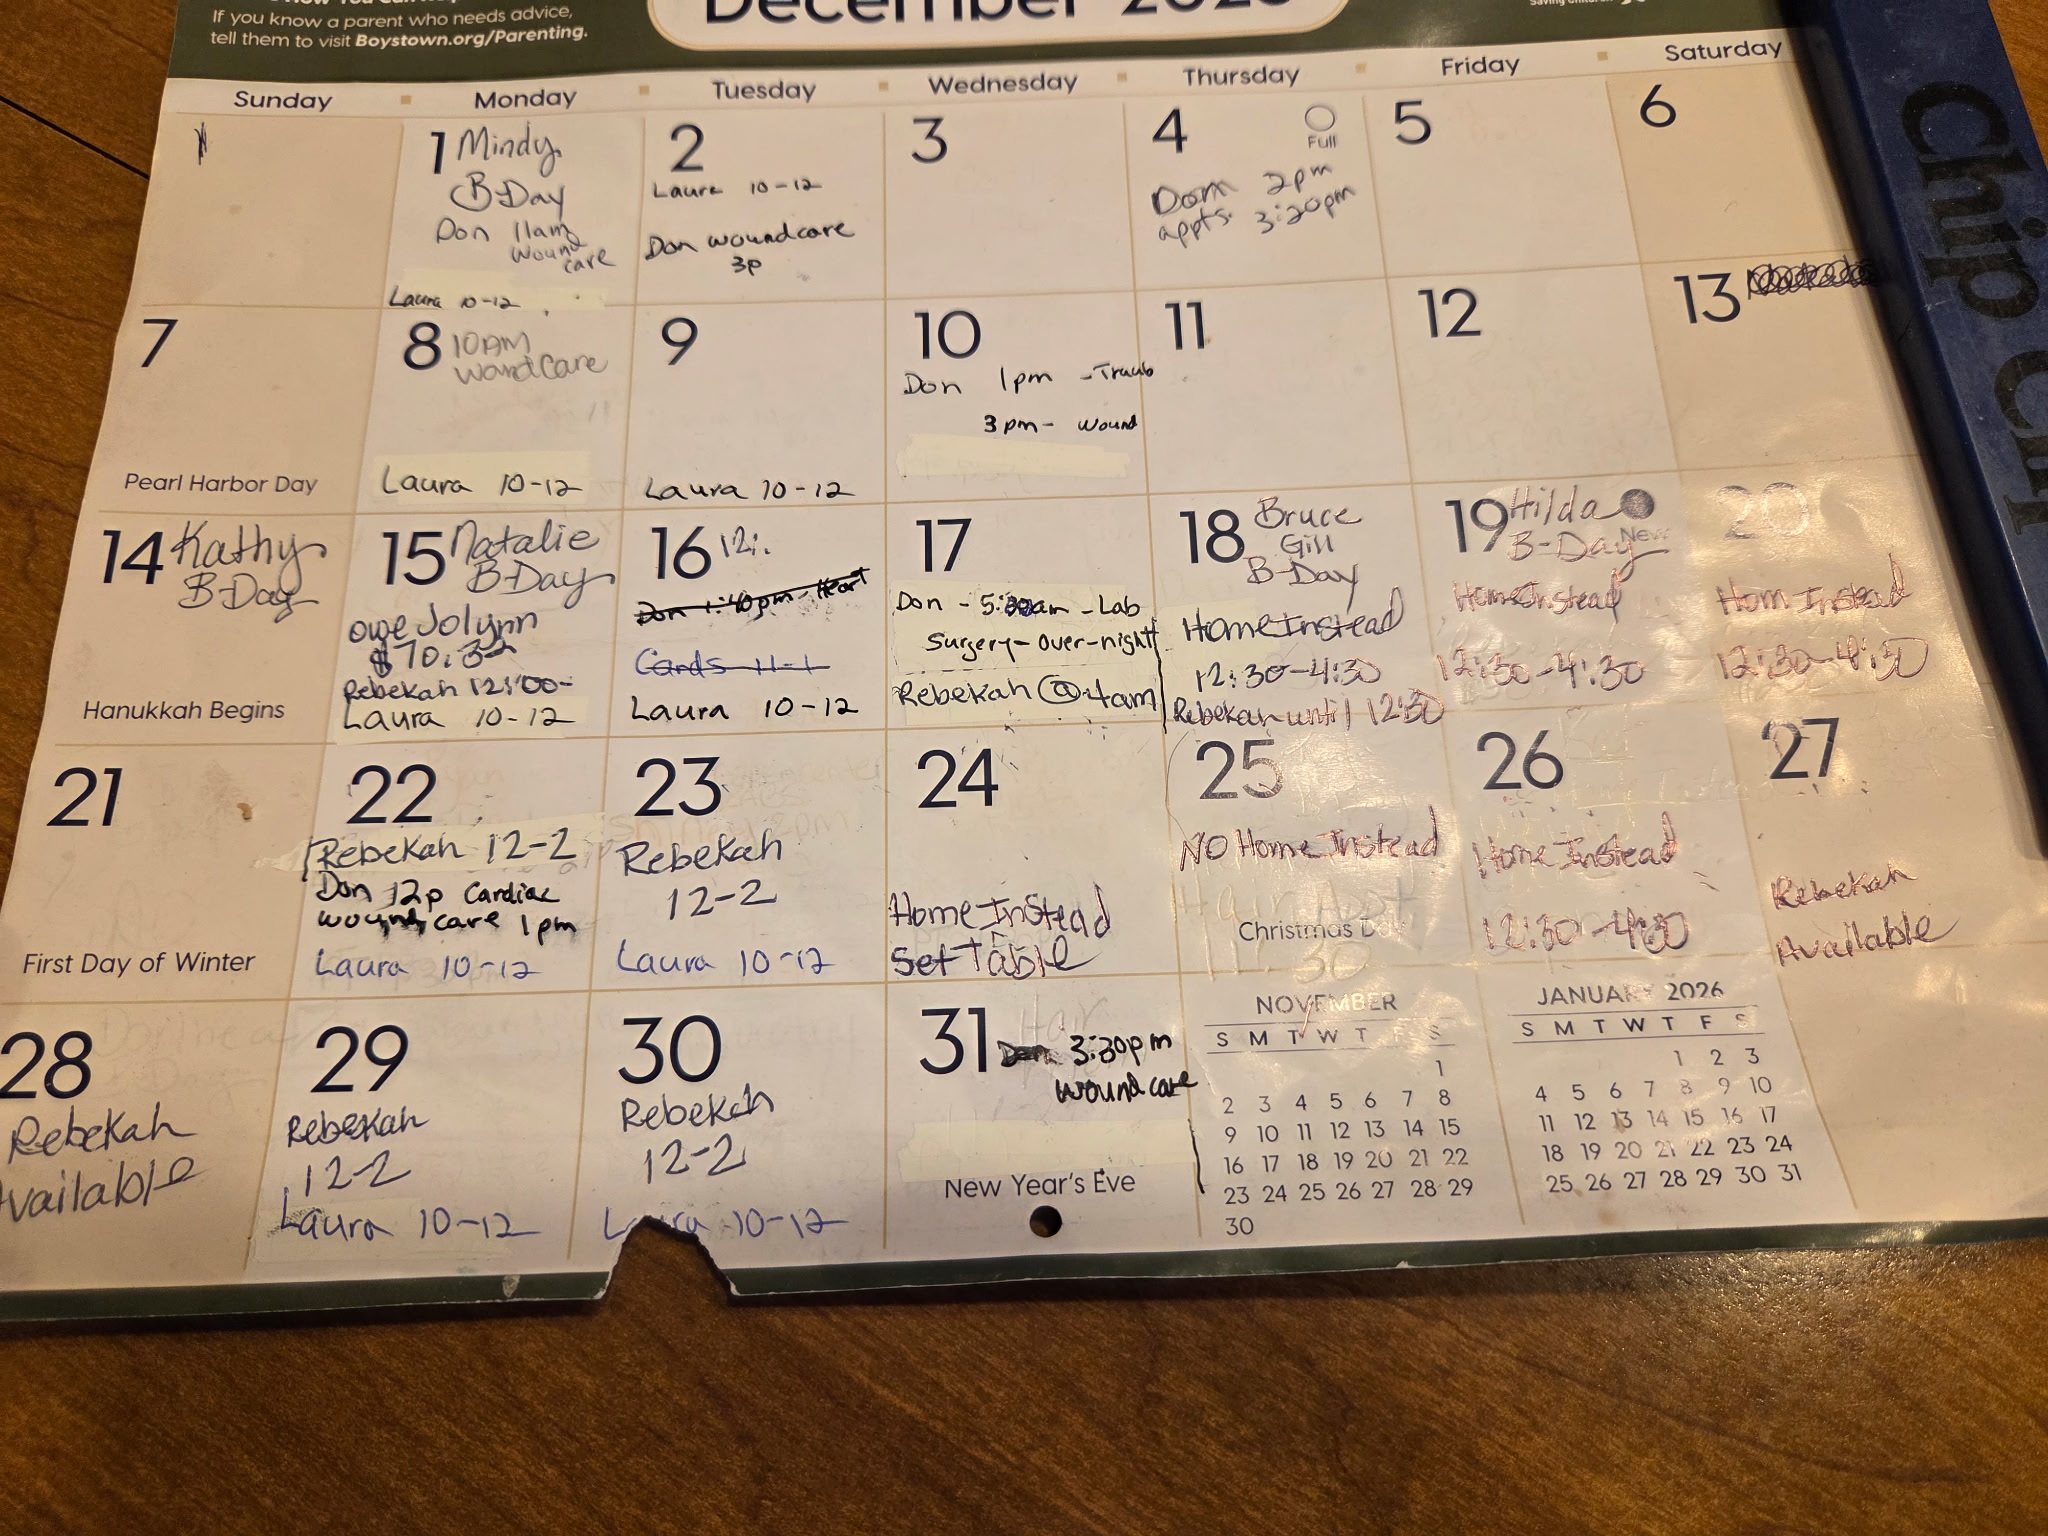 If you know a parent who needs advice,
tell them to visit Boystown.org/Parenting.
December 2025
Sunday Monday Tuesday Wednesday Thursday Friday Saturday
1 Mindy
B-Day
Don 11am
wound
care
Laura 10-12
2
Laura 10-12
Don woundcare
3p
3
4
Full
Dom 2pm
appts. 3:20pm
5
6
7
Pearl Harbor Day
8 10AM
WoundCare
Laura 10-12
9
Laura 10-12
10
Don 1pm - Traub
3pm- wound
11
12
13
14 Kathy
B-Day
Hanukkah Begins
15 Natalie
B-Day
owe Jolynn
Rebekah 12:00-
Laura 10-12
16 12:
Don 1:40pm - Heart
Cards 11-1
Laura 10-12
17
Don - am - Lab
Surgery - over-night
Rebekah @ 4am
18 Bruce
Gill
B-Day
HomeInstead
12:30-4:30
Rebekah until 12:30
19 Hilda
New
B-Day
HomeInstead
12:30-4:30
20
Hom Instead
12:30-4:30
21
First Day of Winter
22
Rebekah 12-2
Don 12p Cardiac
wound care 1pm
Laura 10-12
23
Rebekah
12-2
Laura 10-12
24
HomeInstead
Set Table
25
NO HomeInstead
Hair Appt
Christmas Day
26
Home Instead
12:30-4:30
27
Rebekah
Available
28
Rebekah
Available
29
Rebekah
12-2
Laura 10-12
30
Rebekah
12-2
Laura 10-12
31 Don 3:30pm
wound care
New Year's Eve
NOVEMBER
S M T W T F S
1
2 3 4 5 6 7 8
9 10 11 12 13 14 15
16 17 18 19 20 21 22
23 24 25 26 27 28 29
30
JANUARY 2026
S M T W T F S
1 2 3
4 5 6 7 8 9 10
11 12 13 14 15 16 17
18 19 20 21 22 23 24
25 26 27 28 29 30 31
Chip